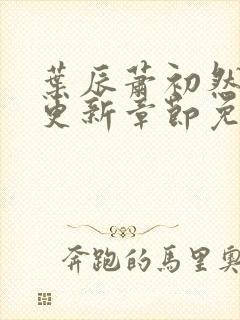 葉辰蕭初然
更新章節免
奔跑的馬里奧